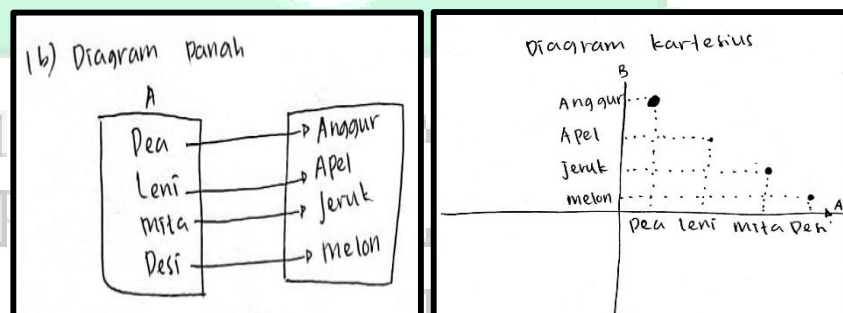 1b) Diagram Panah
A
Dea
Leni
Mita
Desi
Anggur
Apel
Jeruk
melon
Diagram kartesius
B
Anggur
Apel
Jeruk
melon
A
Dea Leni Mita Desi